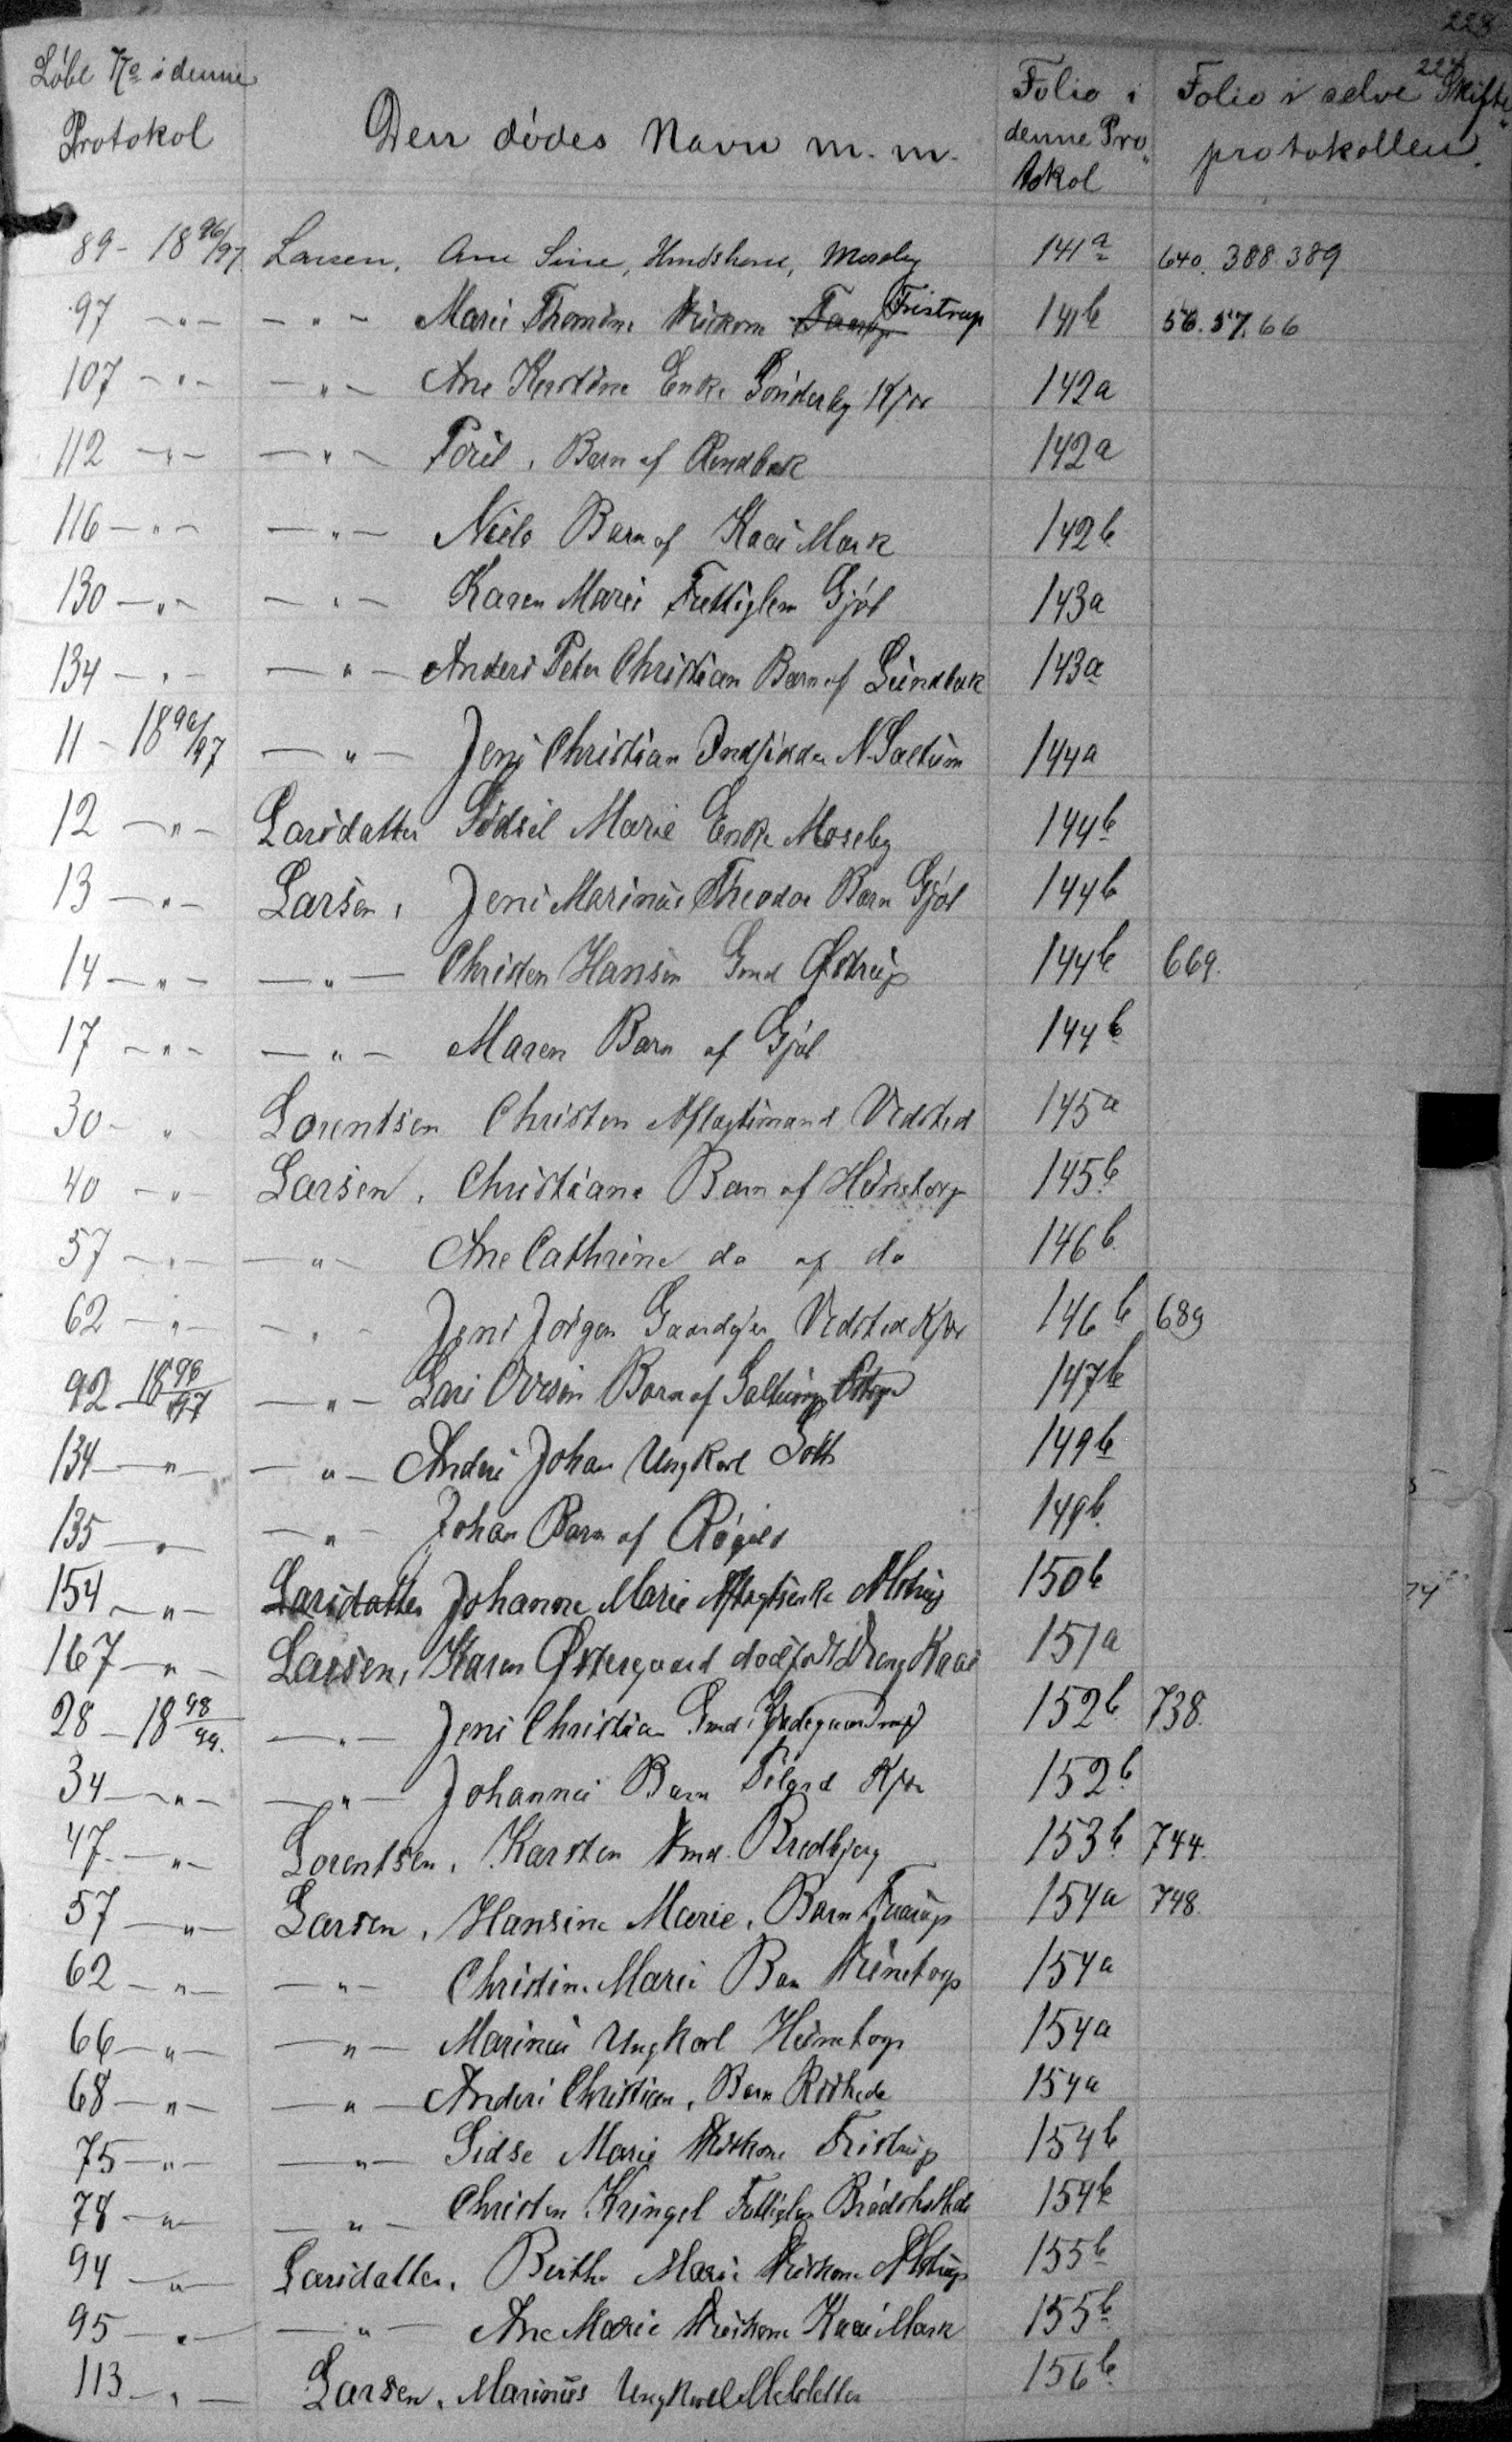 228
224
Löbe No i denne Protokol
Den dödes Navn m. m.
Folio i denne Pro„tokol
Folio i selve Skifte„protokollen.
89 - 18 96/97. Larsen, Ane Sine, Huuskone, Moseby 141a 640. 388. 389
97 -„- -„- Marie Thomine Huskone Taarup Fristrup 141b 56. 57. 66
107 -„- -„- Ane Kirstine Enke Sönderby Kjær 142a
112 -„- -„- Poul, Barn af Rendbæk 142a
116 -„- -„- Niels Barn af Kaas Mark 142b
130 -„- -„- Karen Marie Fattiglem Gjöl 143a
134 -„- -„- Anders Peter Christian Barn af Lundbak 143a
11 - 18 96/97 -„- Jens Christian Indsidder N. Saltum 144a
12 -„- Larsdatter Sidsel Marie Enke Moseby 144b
13 -„- Larsen, Jens Marinus Theodor Barn Gjöl 144b
14 -„- -„- Christen Hansen Gmd Østrup 144b 669.
17 -„- -„- Maren Barn af Gjöl 144b
30 -„- Lorentsen Christen Aftægtsmand Vedsted 145a
40 -„- Larsen, Christiane Barn af Hunetorp 145b
57 -„- -„- Ane Cathrine do af do 146b
62 -„- -„- Jens Jörgen Gaardejer Vedsted Kjær 146b 689
92 - 18 96/97 -„- Lars Ovesen Barn af Saltum 147b
134 -„- -„- Anders Johan Ungkarl 149b
135 -„- -„- Johan Barn af Rögild 149b
154 -„- Larsdatter Johanne Marie Aftægtsenke Alstrup 150b
167 -„- Larsen, Karen Østergaard dödfödt Dreng Kaas 151a
28 - 18 98/99. -„- Jens Christian Gmd. 152b 738.
34 -„- -„- Johannes Barn Pilgrd Kjær 152b
47 -„- Lorentsen, Karsten Hmd. Bredbjerg 153b 744.
57 -„- Larsen, Hansine Marie, Barn Taarup 154a 748.
62 -„- -„- Christine Marie Barn Hunetorp 154a
66 -„- -„- Marinus Ungkarl Hunetorp 154a
68 -„- -„- Anders Christian, Barn Rödhede 154a
75 -„- -„- Sidse Marie Huskone Fristrup 154b
78 -„- -„- Christen Kringel Fattiglem 154b
94 -„- Larsdatter, Birthe Marie Huskone Alstrup 155b
95 -„- -„- Ane Marie Huskone Kaas Mark 155b
113 -„- Larsen, Marinus Ungkarl 156b